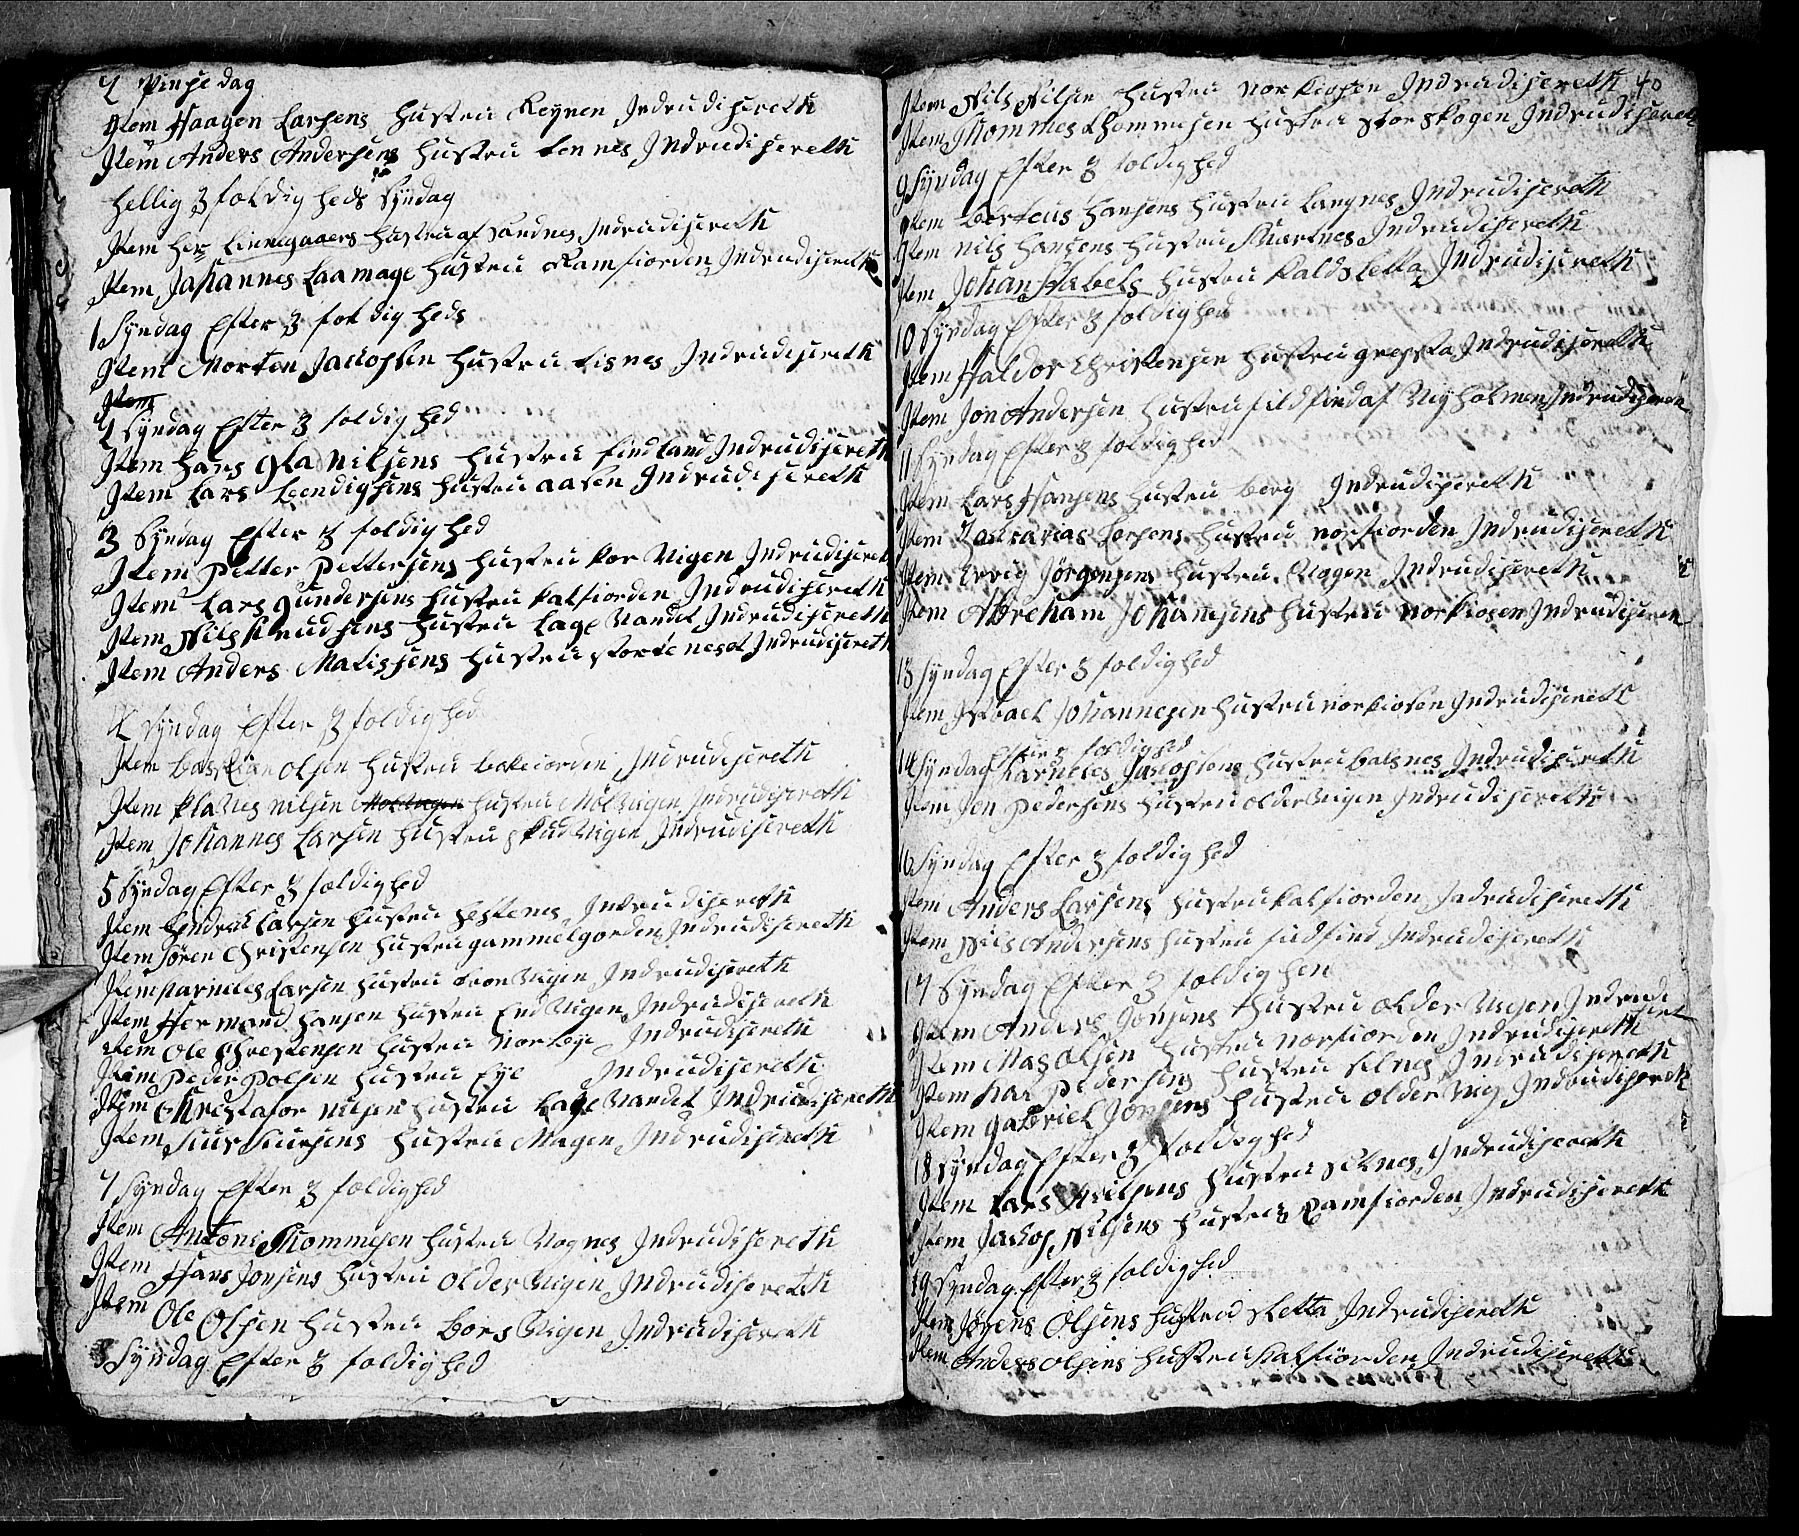 2 Pinse dag
Item Haagen Larsens hustru Reynen Indrudiserethe
Item Anders Andersens hustru Tennes Indrudiserethe
hellig 3 foldig heds Syndag
Item Her Linnegaaers hustru af Sandnes Indrudiserethe
Item Johannes Laamage hustru Ramfiorden Indrudiserethe
1 Syndag Efter 3 foldig heds
Item Morten Jacopsen hustru Tisnes Indrudiserethe
Item
2 Syndag Efter 3 foldig hed
Item hans Nilsens hustru findland Indrudiserethe
Item Lars hustru aasen Indrudiserethe
3 Syndag Efter 3 foldig hed
Item Petter Pettersens hustru Kor Vigen Indrudiseret
Item Lars Gundersens hustru Kalfiorden Indrudiserethe
Item Nils Knudsens hustru Lage Vandet Indrudiserethe
Item Anders Matisens hustru Storte neset Indrudisereth
4 Syndag Efter 3 foldig hed
Item bastian Olsen hustru Indrudiserethe
Item Klaves nilsen Molvigen hustru Mölvigen Indrudiserethe
Item Johannes Larsen hustru Skudvigen Indrudiserethe
5 Syndag Efter 3 foldighed
Item Hendrik Larsen hustru Hestenes Indrudiserethe
Item Sören Christensen hustru gammelgorden Indrudiserethe
Item Karneles Larsen hustru Indrudiserethe
Item Hermand Hansen hustru End Vigen Indrudiserethe
Item Ole Christensen hustru Indrudiserethe
Item Peder Polsen hustru Eye Indrudiserethe
Item Christafor nilsen hustru Lage Vandet Indrudiserethe
Item Siur Siursens hustru Indrudiserethe
7 Syndag Efter 3 foldighed
Item Antoni Thommesen hustru Vognes Indrudiserethe
Item Hans Jonsens hustru older Vigen Indrudiserethe
Item Ole Olsen hustru bors Vigen Indrudiserethe
8 Syndag Efter 3 foldig hed
40
Item Nils Nilsen hustru Norkiosen Indrudiserethe
Item Thommes Thommesen hustru storskogen Indrudiserethe
9 Syndag Efter 3 foldighed
Item berteus Hansens hustru Langnes Indrudiserethe
Item Nils Hansens hustru Skartnes Indrudiserethe
Item Johan Stabels hustru Kalds letta Indrudiserethe
10 Syndag Efter 3 foldighed
Item Haldor Christensen hustru grepsta Indrudiserethe
Item Jon Andersen hustru sildfind af Nyholmen Indrudiserethe
11 Syndag Efter 3 foldighed
Item Lars Hansens hustru berg Indrudiserethe
Item Sacharias Larsens hustru norfiorden Indrudiserethe
Item Ervig Jörgensens hustru Indrudiserethe
Item Abreham Johansens hustru norkiosen Indrudiserethe
13 Syndag Efter 3 foldighed
Item Johannesen hustru norkiosen Indrudiserethe
14 Syndag Efter 3 foldighed
Karneles Jacopsens hustru balsnes Indrudiserethe
Item Jon Pedersens hustru olderVigen Indrudiserethe
16 Syndag Efter 3 foldighed
Item Anders Larsens hustru Kalfiorden Indrudiserethe
Item Nils Andersens hustru Indrudiserethe
17 Syndag Efter 3 foldighen
Item Anders Jonsens hustru older Vigen Indrudi
seret
Item Mas Olsen hustru norfiorden Indrudiserethe
Item Pedersens hustru selnes Indrudiserethe
Item Gabriel Jonsens hustru older Indrudisereth
18 Syndag Efter 3 foldighed
Item Lars Nilsens hustru Selnes Indrudiserethe
Item Jacop Nilsens hustru Ramfiorden Indrudiserethe
19 Syndag Efter 3 foldighed
Item Jörgens Olsens hustru sletta Indrudiserethe
Item Anders olsens hustru Kalfiorden Indrudiserethe